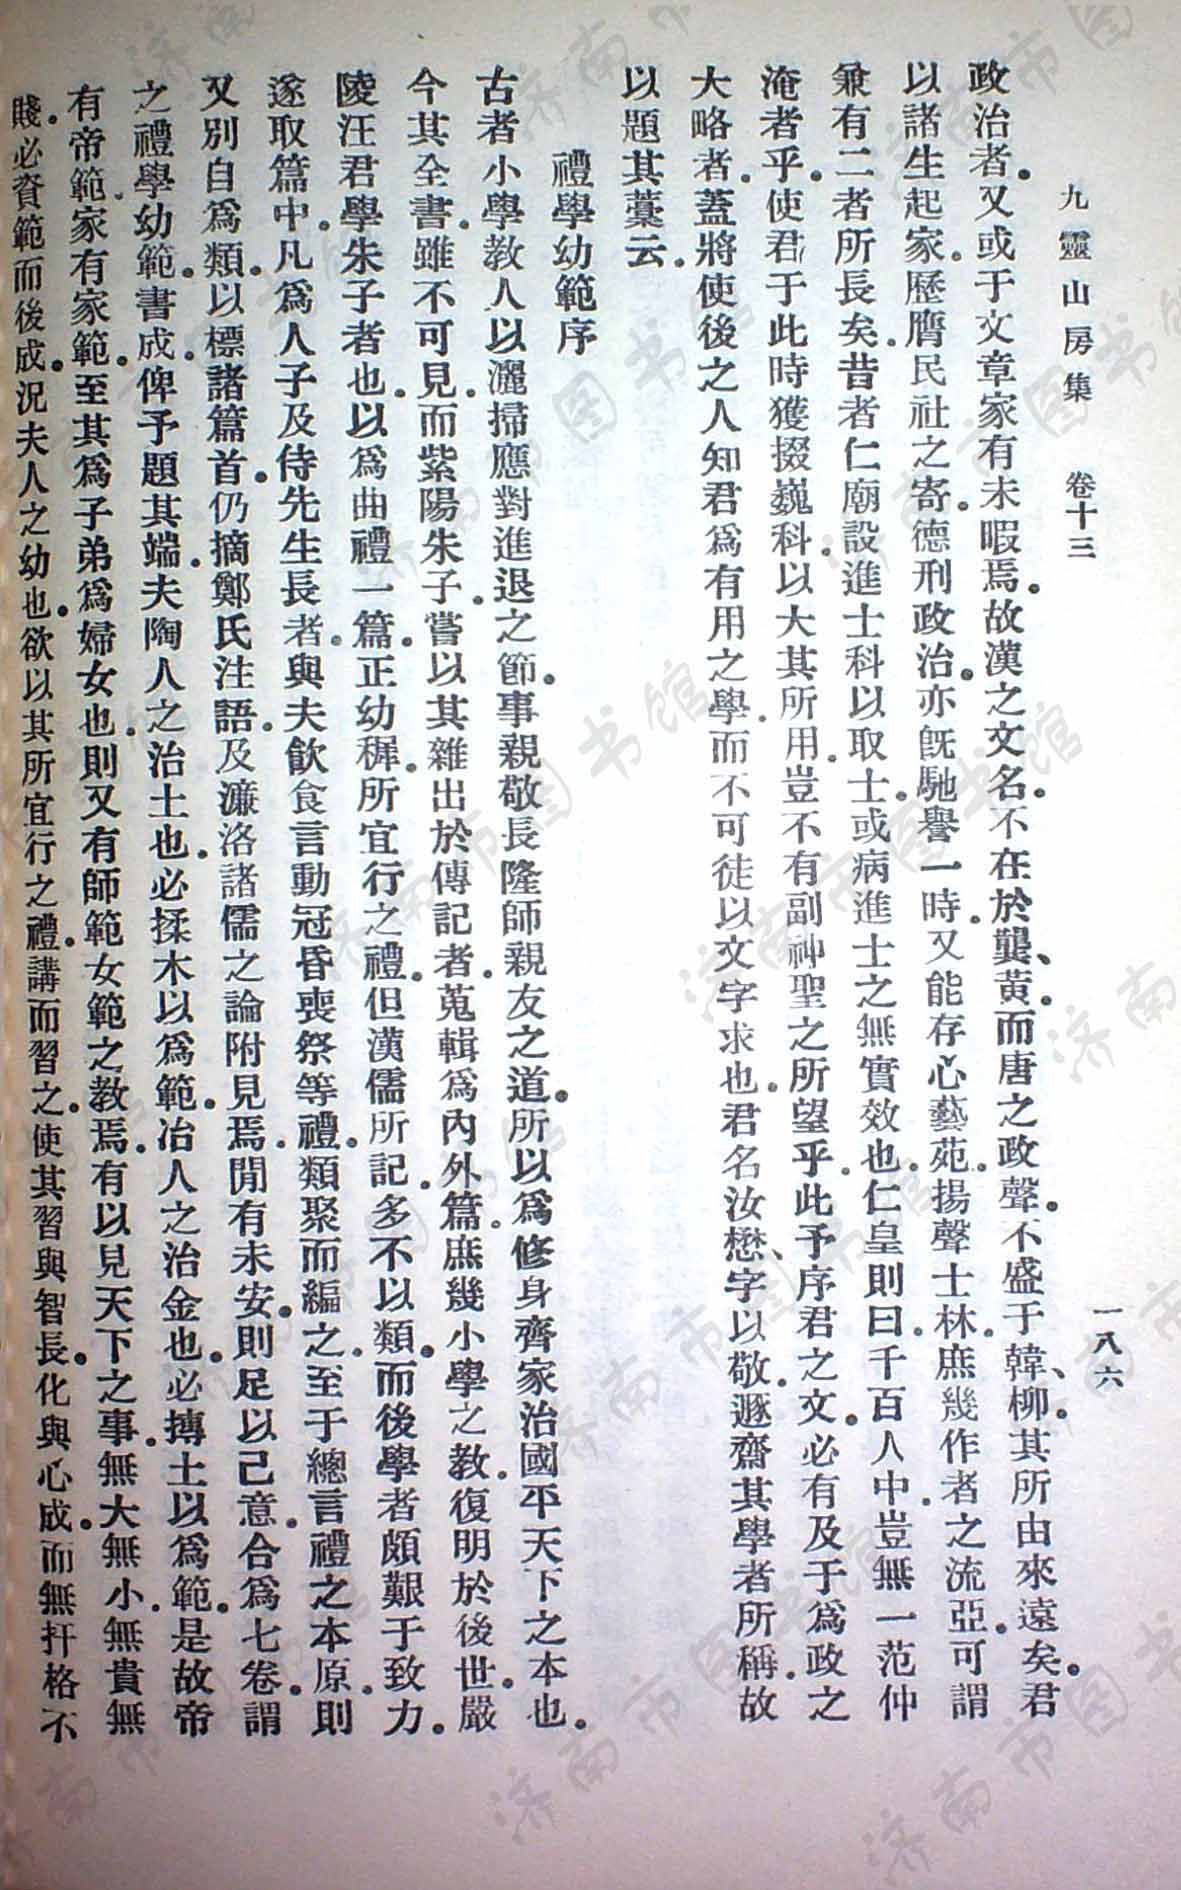 九靈山房集 卷十三 一八六
政治者。又或于文章家有未暇焉。故漢之文名。不在於龔、黃。而唐之政聲。不盛于韓、柳。其所由來遠矣。君
以諸生起家。歷膺民社之寄。德刑政治。亦旣馳譽一時。又能存心藝苑。揚聲士林。庶幾作者之流亞。可謂
兼有二者所長矣。昔者仁廟設進士科以取士。或病進士之無實效也。仁皇則曰。千百人中。豈無一范仲
淹者乎。使君于此時獲掇巍科。以大其所用。豈不有副神聖之所望乎。此予序君之文。必有及于爲政之
大略者。蓋將使後之人知君爲有用之學。而不可徒以文字求也。君名汝懋、字以敬。遯齋其學者所稱。故
以題其藁云。
禮學幼範序
古者小學教人以灑掃應對進退之節。事親敬長隆師親友之道。所以爲修身齊家治國平天下之本也。
今其全書。雖不可見。而紫陽朱子。嘗以其雜出於傳記者。蒐輯爲內外篇。庶幾小學之教。復明於後世。嚴
陵汪君學朱子者也。以爲曲禮一篇。正幼穉所宜行之禮。但漢儒所記。多不以類。而後學者頗艱于致力。
遂取篇中。凡爲人子及侍先生長者。與夫飲食言動冠昏喪祭等禮。類聚而編之。至于總言禮之本原。則
又別自爲類。以標諸篇首。仍摘鄭氏注語。及濂洛諸儒之論附見焉。閒有未安。則足以己意。合爲七卷。謂
之禮學幼範。書成。俾予題其端。夫陶人之治土也。必揉木以爲範。冶人之治金也。必摶土以爲範。是故帝
有帝範。家有家範。至其爲子弟爲婦女也。則又有師範女範之教焉。有以見天下之事。無大無小。無貴無
賤。必資範而後成。況夫人之幼也。欲以其所宜行之禮。講而習之。使其習與智長。化與心成。而無扞格不